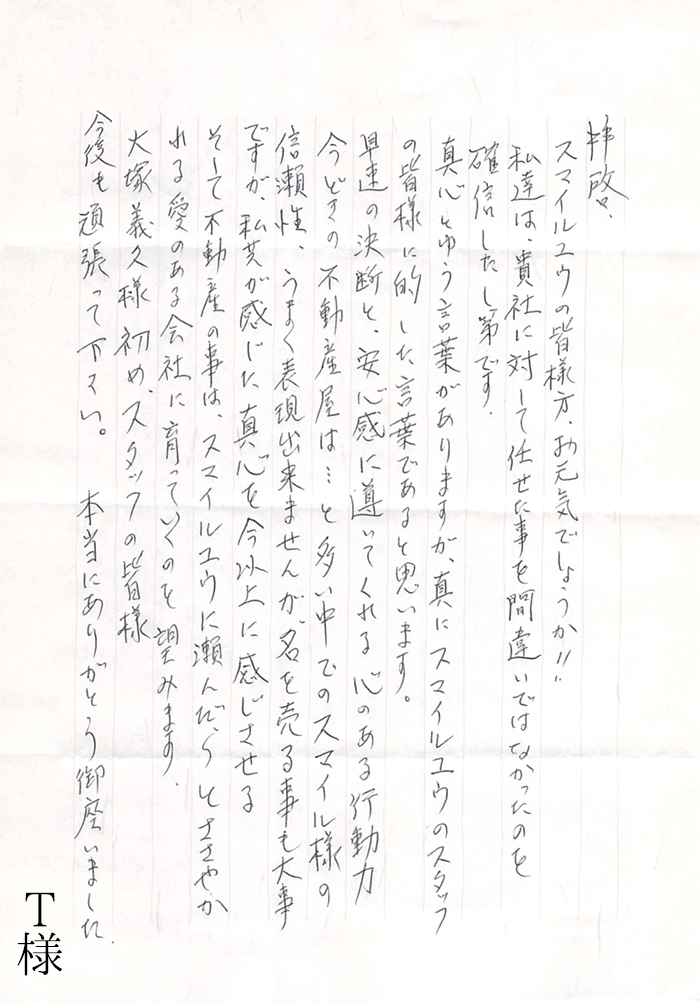 拝啓、
スマイルユウの皆様方、お元気でしょうか!!
私達は、貴社に対して任せた事を間違いではなかったのを
確信したし第です。
真心とゆう言葉がありますが、真にスマイルユウのスタッフ
の皆様に的した言葉であると思います。
早速の決断と、安心感に導いてくれる心のある行動力
今どきの不動産屋は…と多い中でのスマイル様の
信瀬性、うまく表現出来ませんが名を売る事も大事
ですが、私共が感じた真心を今以上に感じさせる
そして不動産の事は、スマイルユウに瀬んだらとささやか
れる愛のある会社に育っていくのを望みます。
大塚義久様初め、スタッフの皆様
今後も頑張って下さい。 本当にありがとう御座いました、
T様